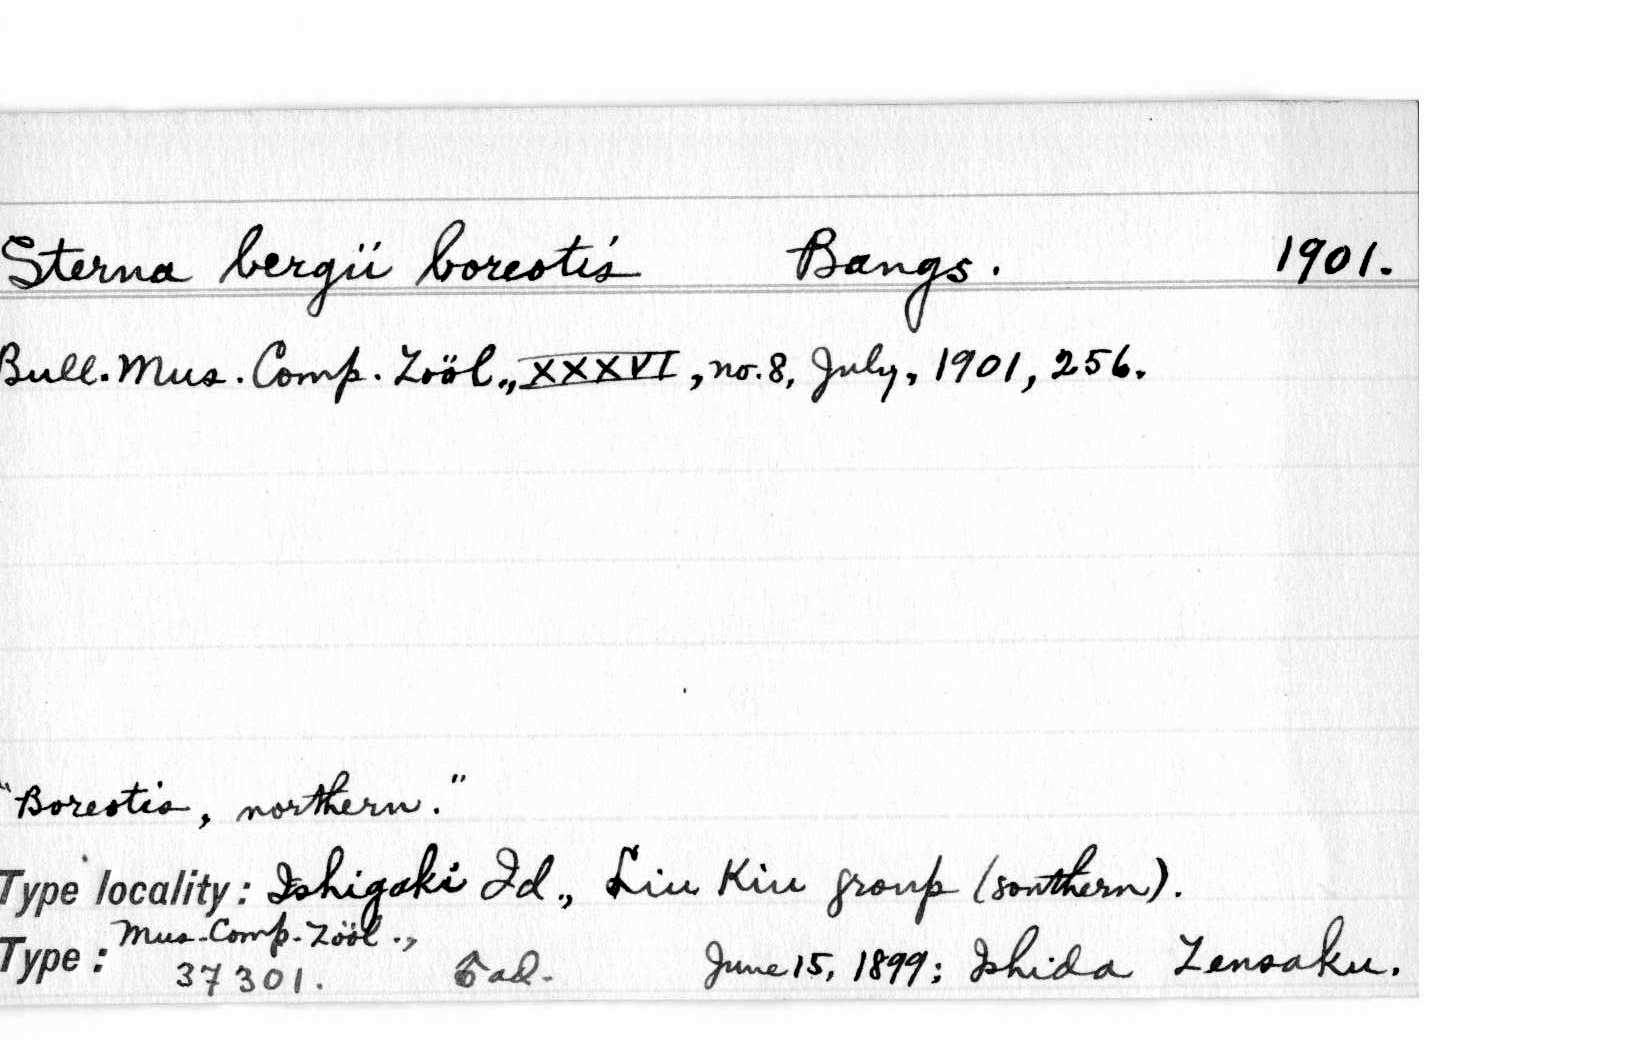 Sterna bergii boreotis Bangs. 1901.
Bull. Mus. Comp. Zoöl., XXXVI, no. 8, July, 1901, 256.
"Boreotis, northern."
Type locality: Ishigaki Id., Liu Kiu group (southern).
Type: Mus. Comp. Zoöl.,
37301. ad. June 15, 1899; Ishida Zensaku.